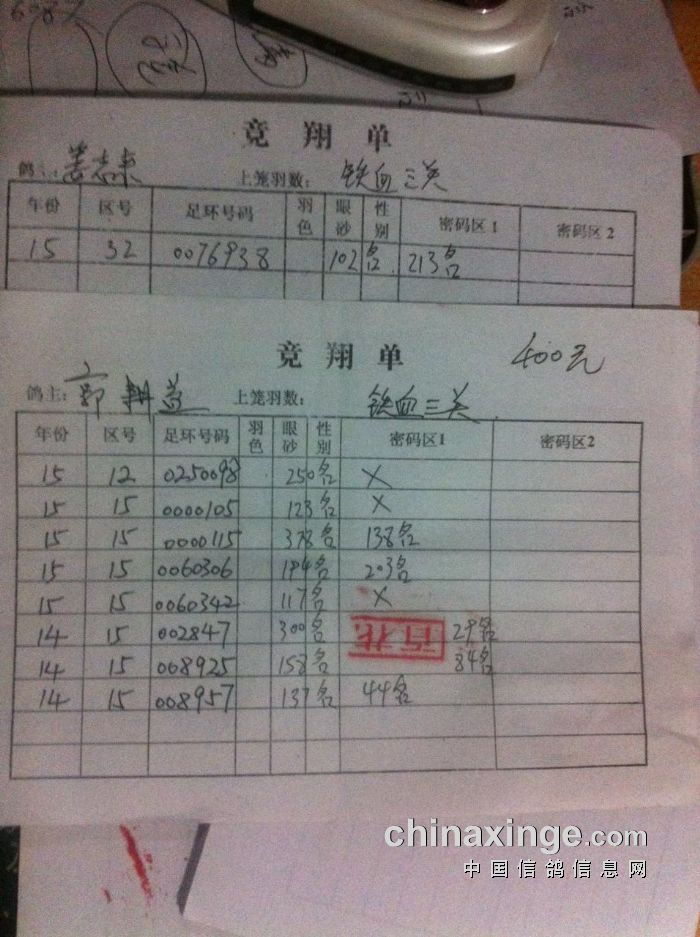 竞 翔 单
鸽主: 姜志来 上笼羽数: 铁血三关
年份 区号 足环号码 羽色 眼砂 性别 密码区1 密码区2
15 32 0076938 102名 213名
竞 翔 单 400元
鸽主: 郭 上笼羽数: 铁血三关
年份 区号 足环号码 羽色 眼砂 性别 密码区1 密码区2
15 12 0250098 250名 X
15 15 0000105 123名 X
15 15 0000115 378名 138名
15 15 0060306 194名 203名
15 15 0060342 117名 X
14 15 002847 300名 29名
14 15 008925 158名 84名
14 15 008957 137名 44名
chinaxinge.com
中国信鸽信息网